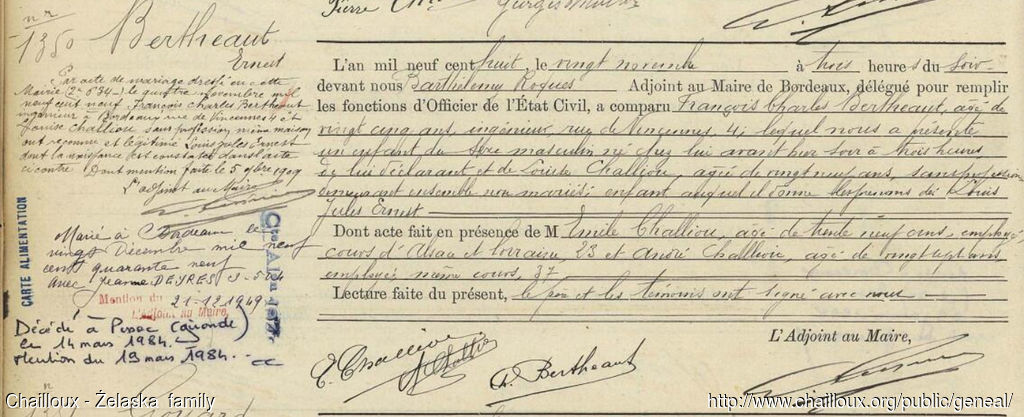 nº
1350
Bertheaut
Ernest
Par acte de mariage dressé en cette
Mairie (2e S 34) le quatre novembre mil
neuf cent neuf, François Charles Bertheaut
ingénieur à Bordeaux rue de Vincennes 4 et
Louise Challiou sans profession même maison
ont reconnu et légitimé Louis Jules Ernest
dont la naissance est constatée dans l'acte
ci contre. Dont mention faite le 5 9bre 1909
L'adjoint au Maire
Marié à Bordeaux le
vingt Décembre mil neuf
cent quarante neuf
avec Jeanne DEYRES
Mention du 21-12-1949
L'Adjoint au Maire,
Décédé à Pessac (Gironde)
le 14 mars 1984.
Mention du 19 mars 1984.
CARTE ALIMENTATION
Pierre
L'an mil neuf cent huit, le vingt novembre à trois heures du soir
devant nous Barthélemy Roques Adjoint au Maire de Bordeaux, délégué pour remplir
les fonctions d'Officier de l'État Civil, a comparu François Charles Bertheaut, âgé de
vingt cinq ans, ingénieur, rue de Vincennes, 4; lequel nous a présenté
un enfant du sexe masculin né chez lui avant hier soir à trois heures
de lui déclarant et de Louise Challiou, âgée de vingt neuf ans, sans profession
demeurant ensemble non mariés; enfant auquel il donne les prénoms de: Louis
Jules Ernest
Dont acte fait en présence de M Emile Challiou, âgé de trente neuf ans, employé,
cours d'Alsace et Lorraine, 23 et André Challiou, âgé de vingt sept ans
employé même cours, 37
Lecture faite du présent, le père et les témoins ont signé avec nous
L'Adjoint au Maire,
E. Challiou
A. Challiou
Ch. Bertheaut
Chailloux - Żelaska family
http://www.chailloux.org/public/geneal/